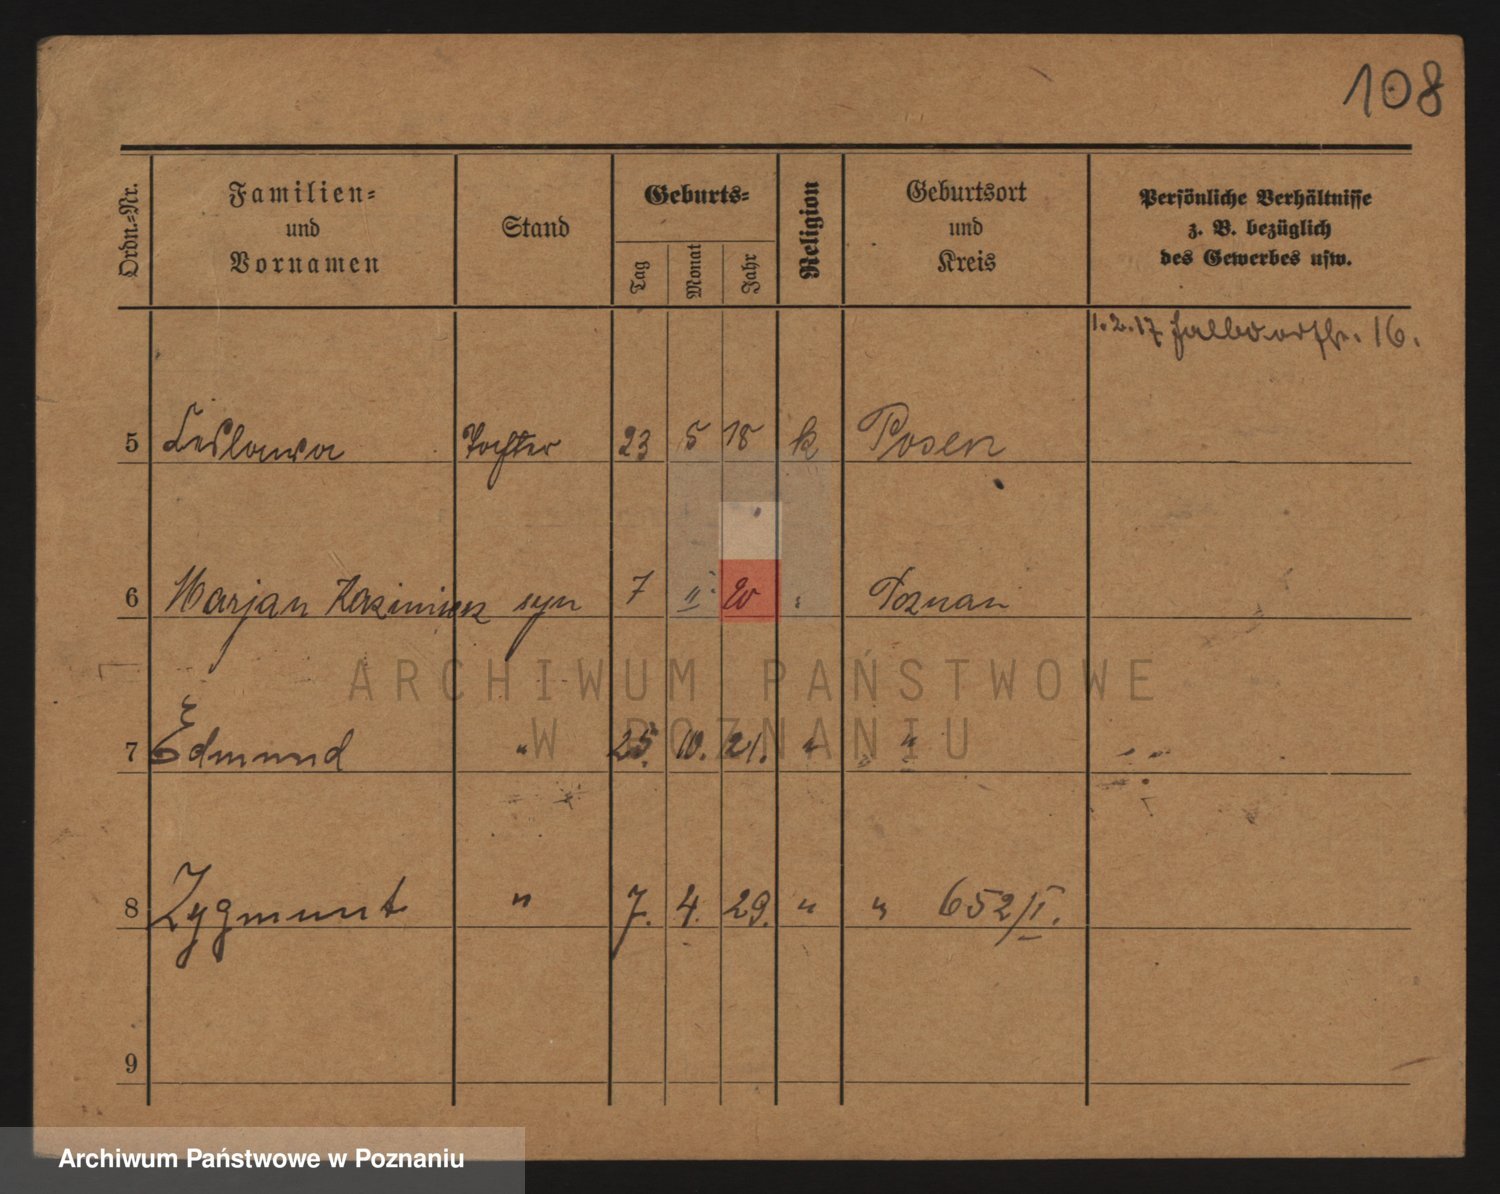 108
Ordn.=Nr.
Familien=
und
Vornamen
Stand
Geburts=
Tag
Monat
Jahr
Religion
Geburtsort
und
Kreis
Persönliche Verhältnisse
z. B. bezüglich
des Gewerbes usw.
1.2.17 16.
5 Lesława Tochter 23 5 18 k Posen
6 Marjan Kazimierz syn 7 II 20 Poznan
7 Edmund " 25. 10. 21. " "
8 Zygmunt " 7. 4. 29. " " 652/II.
9
ARCHIWUM PAŃSTWOWE
W POZNANIU
Archiwum Państwowe w Poznaniu